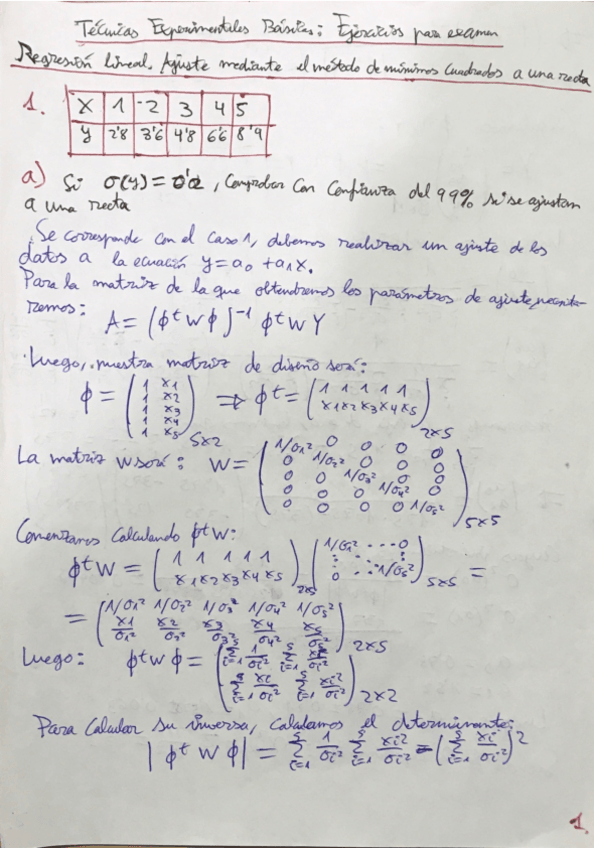 Técnicas Experimentales Básicas: Ejercicios para examen
Regresión lineal. Ajuste mediante el método de mínimos cuadrados a una recta
1.
X 1 2 3 4 5
y 2'8 3'6 4'8 6'6 8'9
a) Si σ(y) = 0'2, Comprobar con confianza del 99% si se ajustan
a una recta
Se corresponde con el caso 1, debemos realizar un ajuste de los
datos a la ecuación y = a₀ + a₁x.
Para la matriz de la que obtendremos los parámetros de ajuste, necesita-
remos:
A = (ϕᵗ W ϕ)⁻¹ ϕᵗ W Y
Luego, nuestra matriz de diseño será:
ϕ = (1 x1 1 x2 1 x3 1 x4 1 x5) 5x2 ⇒ ϕᵗ = (1 1 1 1 1 x1 x2 x3 x4 x5) 2x5
La matriz W será: W = (1/σ₁² 0 0 0 0 0 1/σ₂² 0 0 0 0 0 1/σ₃² 0 0 0 0 0 1/σ₄² 0 0 0 0 0 1/σ₅²) 5x5
Comenzamos calculando ϕᵗW:
ϕᵗW = (1 1 1 1 1 x1 x2 x3 x4 x5) 2x5 (1/σ₁² ... 0 ... 0 ... 1/σ₅²) 5x5 =
= (1/σ₁² 1/σ₂² 1/σ₃² 1/σ₄² 1/σ₅² x1/σ₁² x2/σ₂² x3/σ₃² x4/σ₄² x5/σ₅²) 2x5
Luego: ϕᵗWϕ = (Σ⁵ᵢ₌₁ 1/σᵢ² Σ⁵ᵢ₌₁ xᵢ/σᵢ² Σ⁵ᵢ₌₁ xᵢ/σᵢ² Σ⁵ᵢ₌₁ xᵢ²/σᵢ²) 2x2
Para calcular su inversa, calculamos el determinante:
|ϕᵗ W ϕ| = Σ⁵ᵢ₌₁ 1/σᵢ² Σ⁵ᵢ₌₁ xᵢ²/σᵢ² - (Σ⁵ᵢ₌₁ xᵢ/σᵢ²)²
1.